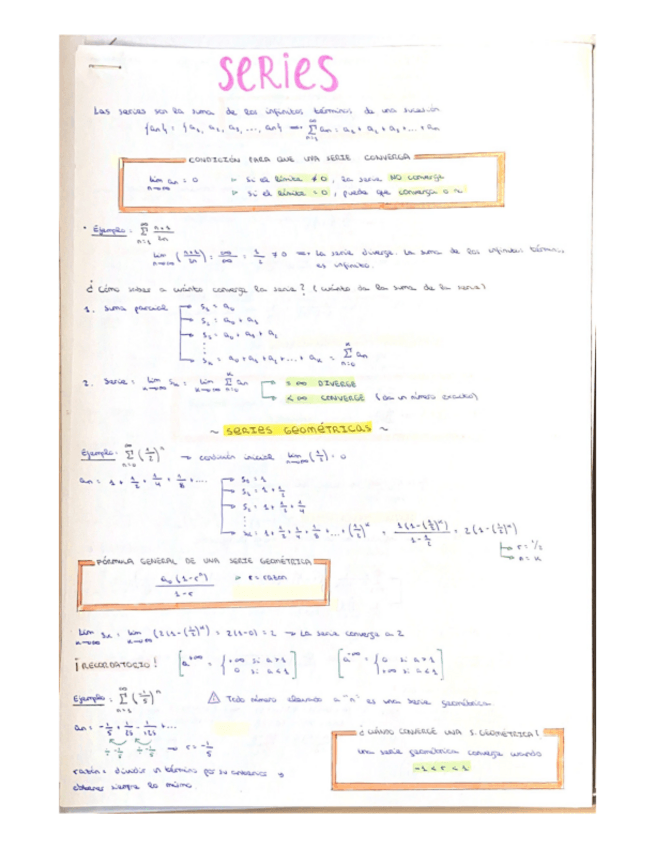 SERIES
Las series son la suma de los infinitos términos de una sucesión
{an} = {a₁, a₂, a₃, ..., an} ⇒ Σ(n=1, ∞) an = a₁ + a₂ + a₃ + ... + an
CONDICIÓN PARA QUE UNA SERIE CONVERGA
lim(n→∞) an = 0
▹ Si el límite ≠ 0, la serie NO converge
▹ Si el límite = 0, puede que converga o ~
• Ejemplo: Σ(n=1, ∞) (n+1)/2n
lim(n→∞) ((n+1)/2n) = ∞/∞ = 1/2 ≠ 0 ⇒ La serie diverge. La suma de los infinitos términos
es infinito.
¿Cómo saber a cuánto converge la serie? (cuánto da la suma de la serie)
1. Suma parcial
→ a₀
→ a₀ + a₁
→ a₀ + a₁ + a₂
→ a₀ + a₁ + a₂ + ... + aₖ = Σ(n=0, k) an
2. Serie = lim Sₖ = lim Σ an
→ = ∞ DIVERGE
→ < ∞ CONVERGE (da un número exacto)
~ SERIES GEOMÉTRICAS ~
Ejemplo: Σ(n=0, ∞) (1/2)ⁿ → condición inicial lim(n→∞) (1/2) = 0
an = 1 + 1/2 + 1/4 + 1/8 + ....
→ S₀ = 1
→ S₁ = 1 + 1/2
→ S₂ = 1 + 1/2 + 1/4
→ 1 + 1/2 + 1/4 + 1/8 + ... + (1/2)ᵏ = 1(1-(1/2)ᵏ)/(1-1/2) = 2(1-(1/2)ᵏ)
→ r = 1/2
→ n = k
FÓRMULA GENERAL DE UNA SERIE GEOMÉTRICA
a₀(1-rⁿ)/(1-r) ▹ r = razón
lim(n→∞) Sn = lim(n→∞) (2(1-(1/2)ᵏ) = 2(1-0) = 2 → La serie converge a 2
¡RECORDATORIO!
[a^+∞ = { +∞ si a>1
0 si a<1 ]
[a^-∞ = { 0 si a>1
+∞ si a<1 ]
Ejemplo: Σ(n=1, ∞) (-1/5)ⁿ
⚠ Todo número elevado a "n" es una serie geométrica
an = -1/5 + 1/25 - 1/125 + ...
÷ -1/5 ÷ -1/5 ⇒ r = -1/5
razón = dividir un término por su anterior y
obtener siempre lo mismo.
¿CUÁNDO CONVERGE UNA S. GEOMÉTRICA?
una serie geométrica converge cuando
-1 < r < 1